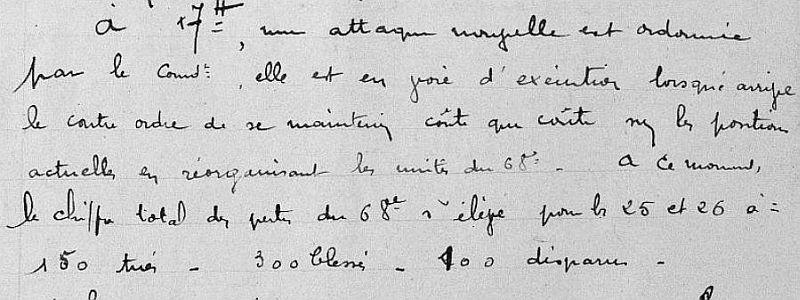 à 17H, une attaque nouvelle est ordonnée
par le Comdt, elle est en voie d'exécution lorsqu'arrive
le contre ordre de se maintenir coûte que coûte sur les positions
actuelles en réorganisant les unités du 68e. A ce moment,
le chiffre total des pertes du 68e s'élève pour les 25 et 26 à =
150 tués - 300 blessés - 400 disparus -